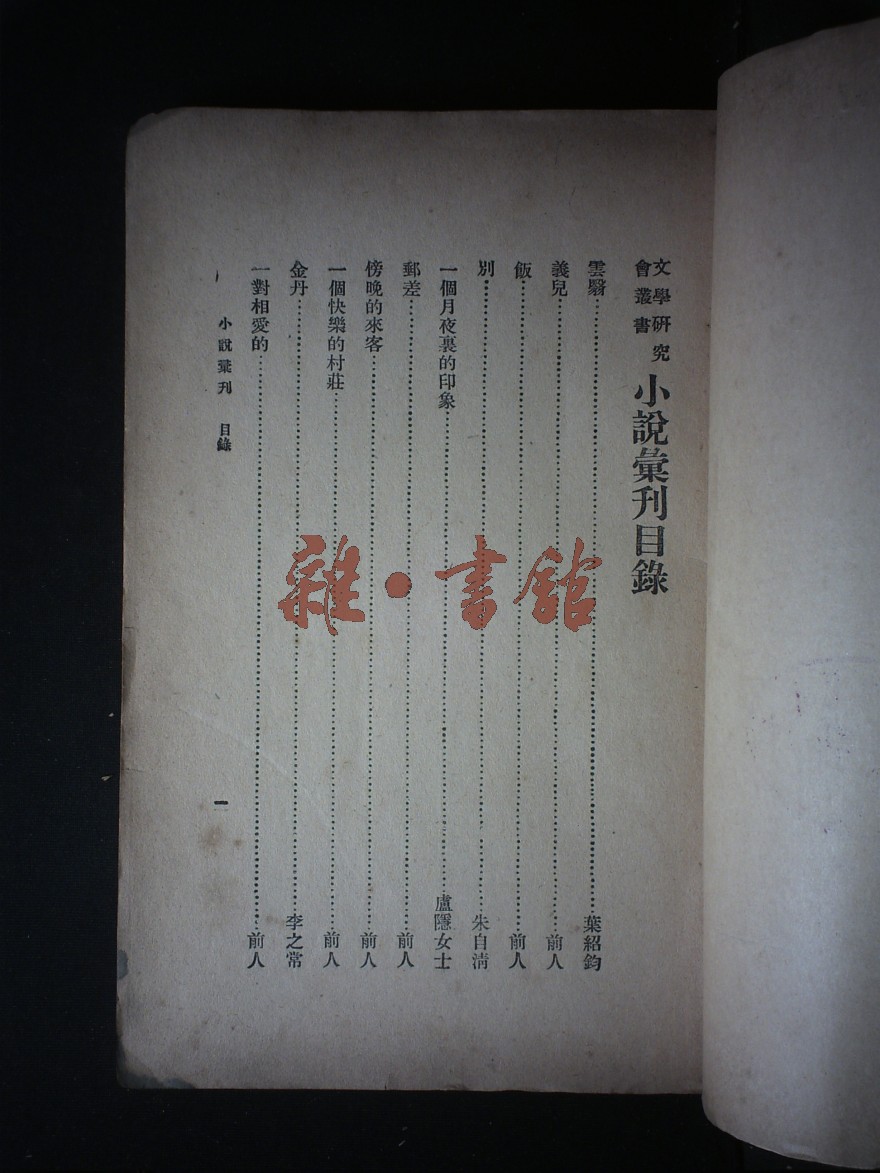 文學研究會叢書 小說彙刊目錄
雲翳……葉紹鈞
義兒……前人
飯……前人
別……朱自淸
一個月夜裏的印象……廬隱女士
郵差……前人
傍晚的來客……前人
一個快樂的村莊……前人
金丹……李之常
一對相愛的……前人
小說彙刊 目錄 一
雜·書館